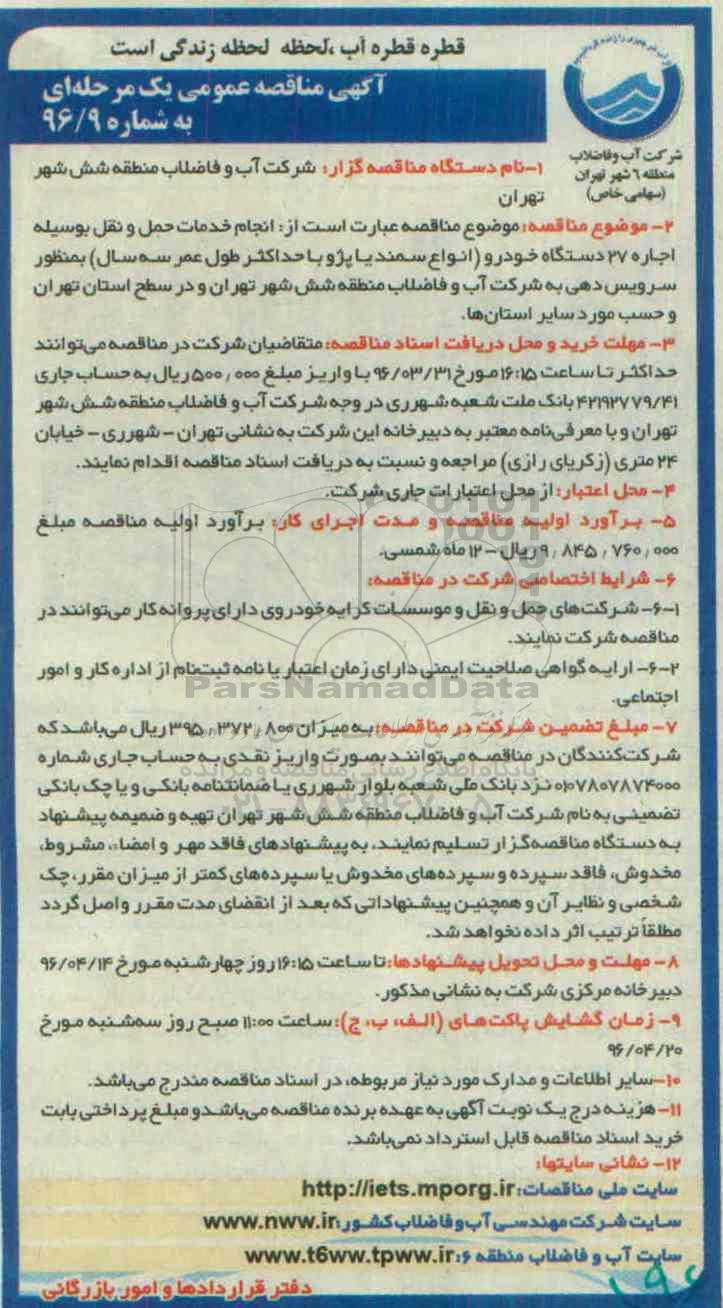 قطره قطره آب ،لحظه لحظه زندگی است
آگهی مناقصه عمومی یک مرحله‌ای
به شماره ۹۶/۹
شرکت آب وفاضلاب
منطقه ۶ شهر تهران
(سهامی خاص)
۱-نام دستگاه مناقصه گزار: شرکت آب و فاضلاب منطقه شش شهر
تهران
۲- موضوع مناقصه: موضوع مناقصه عبارت است از: انجام خدمات حمل و نقل بوسیله
اجاره ۲۷ دستگاه خودرو (انواع سمند یا پژو با حداکثر طول عمر سه سال) بمنظور
سرویس دهی به شرکت آب و فاضلاب منطقه شش شهر تهران و در سطح استان تهران
و حسب مورد سایر استان‌ها.
۳- مهلت خرید و محل دریافت اسناد مناقصه: متقاضیان شرکت در مناقصه می‌توانند
حداکثر تا ساعت ۱۶:۱۵ مورخ ۹۶/۰۳/۳۱ با واریز مبلغ ۵۰۰٫۰۰۰ ریال به حساب جاری
۴۲۱۹۲۷۷۹/۴۱ بانک ملت شعبه شهرری در وجه شرکت آب و فاضلاب منطقه شش شهر
تهران و با معرفی‌نامه معتبر به دبیرخانه این شرکت به نشانی تهران - شهرری - خیابان
۲۴ متری (زکریای رازی) مراجعه و نسبت به دریافت اسناد مناقصه اقدام نمایند.
۴- محل اعتبار: از محل اعتبارات جاری شرکت.
۵- برآورد اولیه مناقصه و مدت اجرای کار: برآورد اولیه مناقصه مبلغ
۹٫۸۴۵٫۷۶۰٫۰۰۰ ریال - ۱۲ ماه شمسی.
۶- شرایط اختصاصی شرکت در مناقصه:
۶-۱- شرکت‌های حمل و نقل و موسسات کرایه خودروی دارای پروانه کار می‌توانند در
مناقصه شرکت نمایند.
۶-۲- ارایه گواهی صلاحیت ایمنی دارای زمان اعتبار یا نامه ثبت‌نام از اداره کار و امور
اجتماعی.
ParsNamadData
۷- مبلغ تضمین شرکت در مناقصه: به میزان ۳۹۵٫۳۷۲٫۸۰۰ ریال می‌باشد که
شرکت‌کنندگان در مناقصه می‌توانند بصورت واریز نقدی به حساب جاری شماره
۰۱۰۷۸۰۷۸۷۴۰۰۰ نزد بانک ملی شعبه بلوار شهرری یا ضمانتنامه بانکی و یا چک بانکی
تضمینی به نام شرکت آب و فاضلاب منطقه شش شهر تهران تهیه و ضمیمه پیشنهاد
به دستگاه مناقصه‌گزار تسلیم نمایند. به پیشنهادهای فاقد مهر و امضاء، مشروط،
مخدوش، فاقد سپرده و سپرده‌های مخدوش یا سپرده‌های کمتر از میزان مقرر، چک
شخصی و نظایر آن و همچنین پیشنهاداتی که بعد از انقضای مدت مقرر واصل گردد
مطلقاً ترتیب اثر داده نخواهد شد.
۸- مهلت و محل تحویل پیشنهادها: تا ساعت ۱۶:۱۵ روز چهارشنبه مورخ ۹۶/۰۴/۱۴
دبیرخانه مرکزی شرکت به نشانی مذکور.
۹- زمان گشایش پاکت‌های (الف، ب، ج): ساعت ۱۱:۰۰ صبح روز سه‌شنبه مورخ
۹۶/۰۴/۲۰
۱۰-سایر اطلاعات و مدارک مورد نیاز مربوطه، در اسناد مناقصه مندرج می‌باشد.
۱۱- هزینه درج یک نوبت آگهی به عهده برنده مناقصه می‌باشدو مبلغ پرداختی بابت
خرید اسناد مناقصه قابل استرداد نمی‌باشد.
۱۲- نشانی سایتها:
سایت ملی مناقصات: http://iets.mporg.ir
سایت شرکت مهندسی آب وفاضلاب کشور: www.nww.ir
سایت آب و فاضلاب منطقه ۶: www.t6ww.tpww.ir
دفتر قراردادها و امور بازرگانی